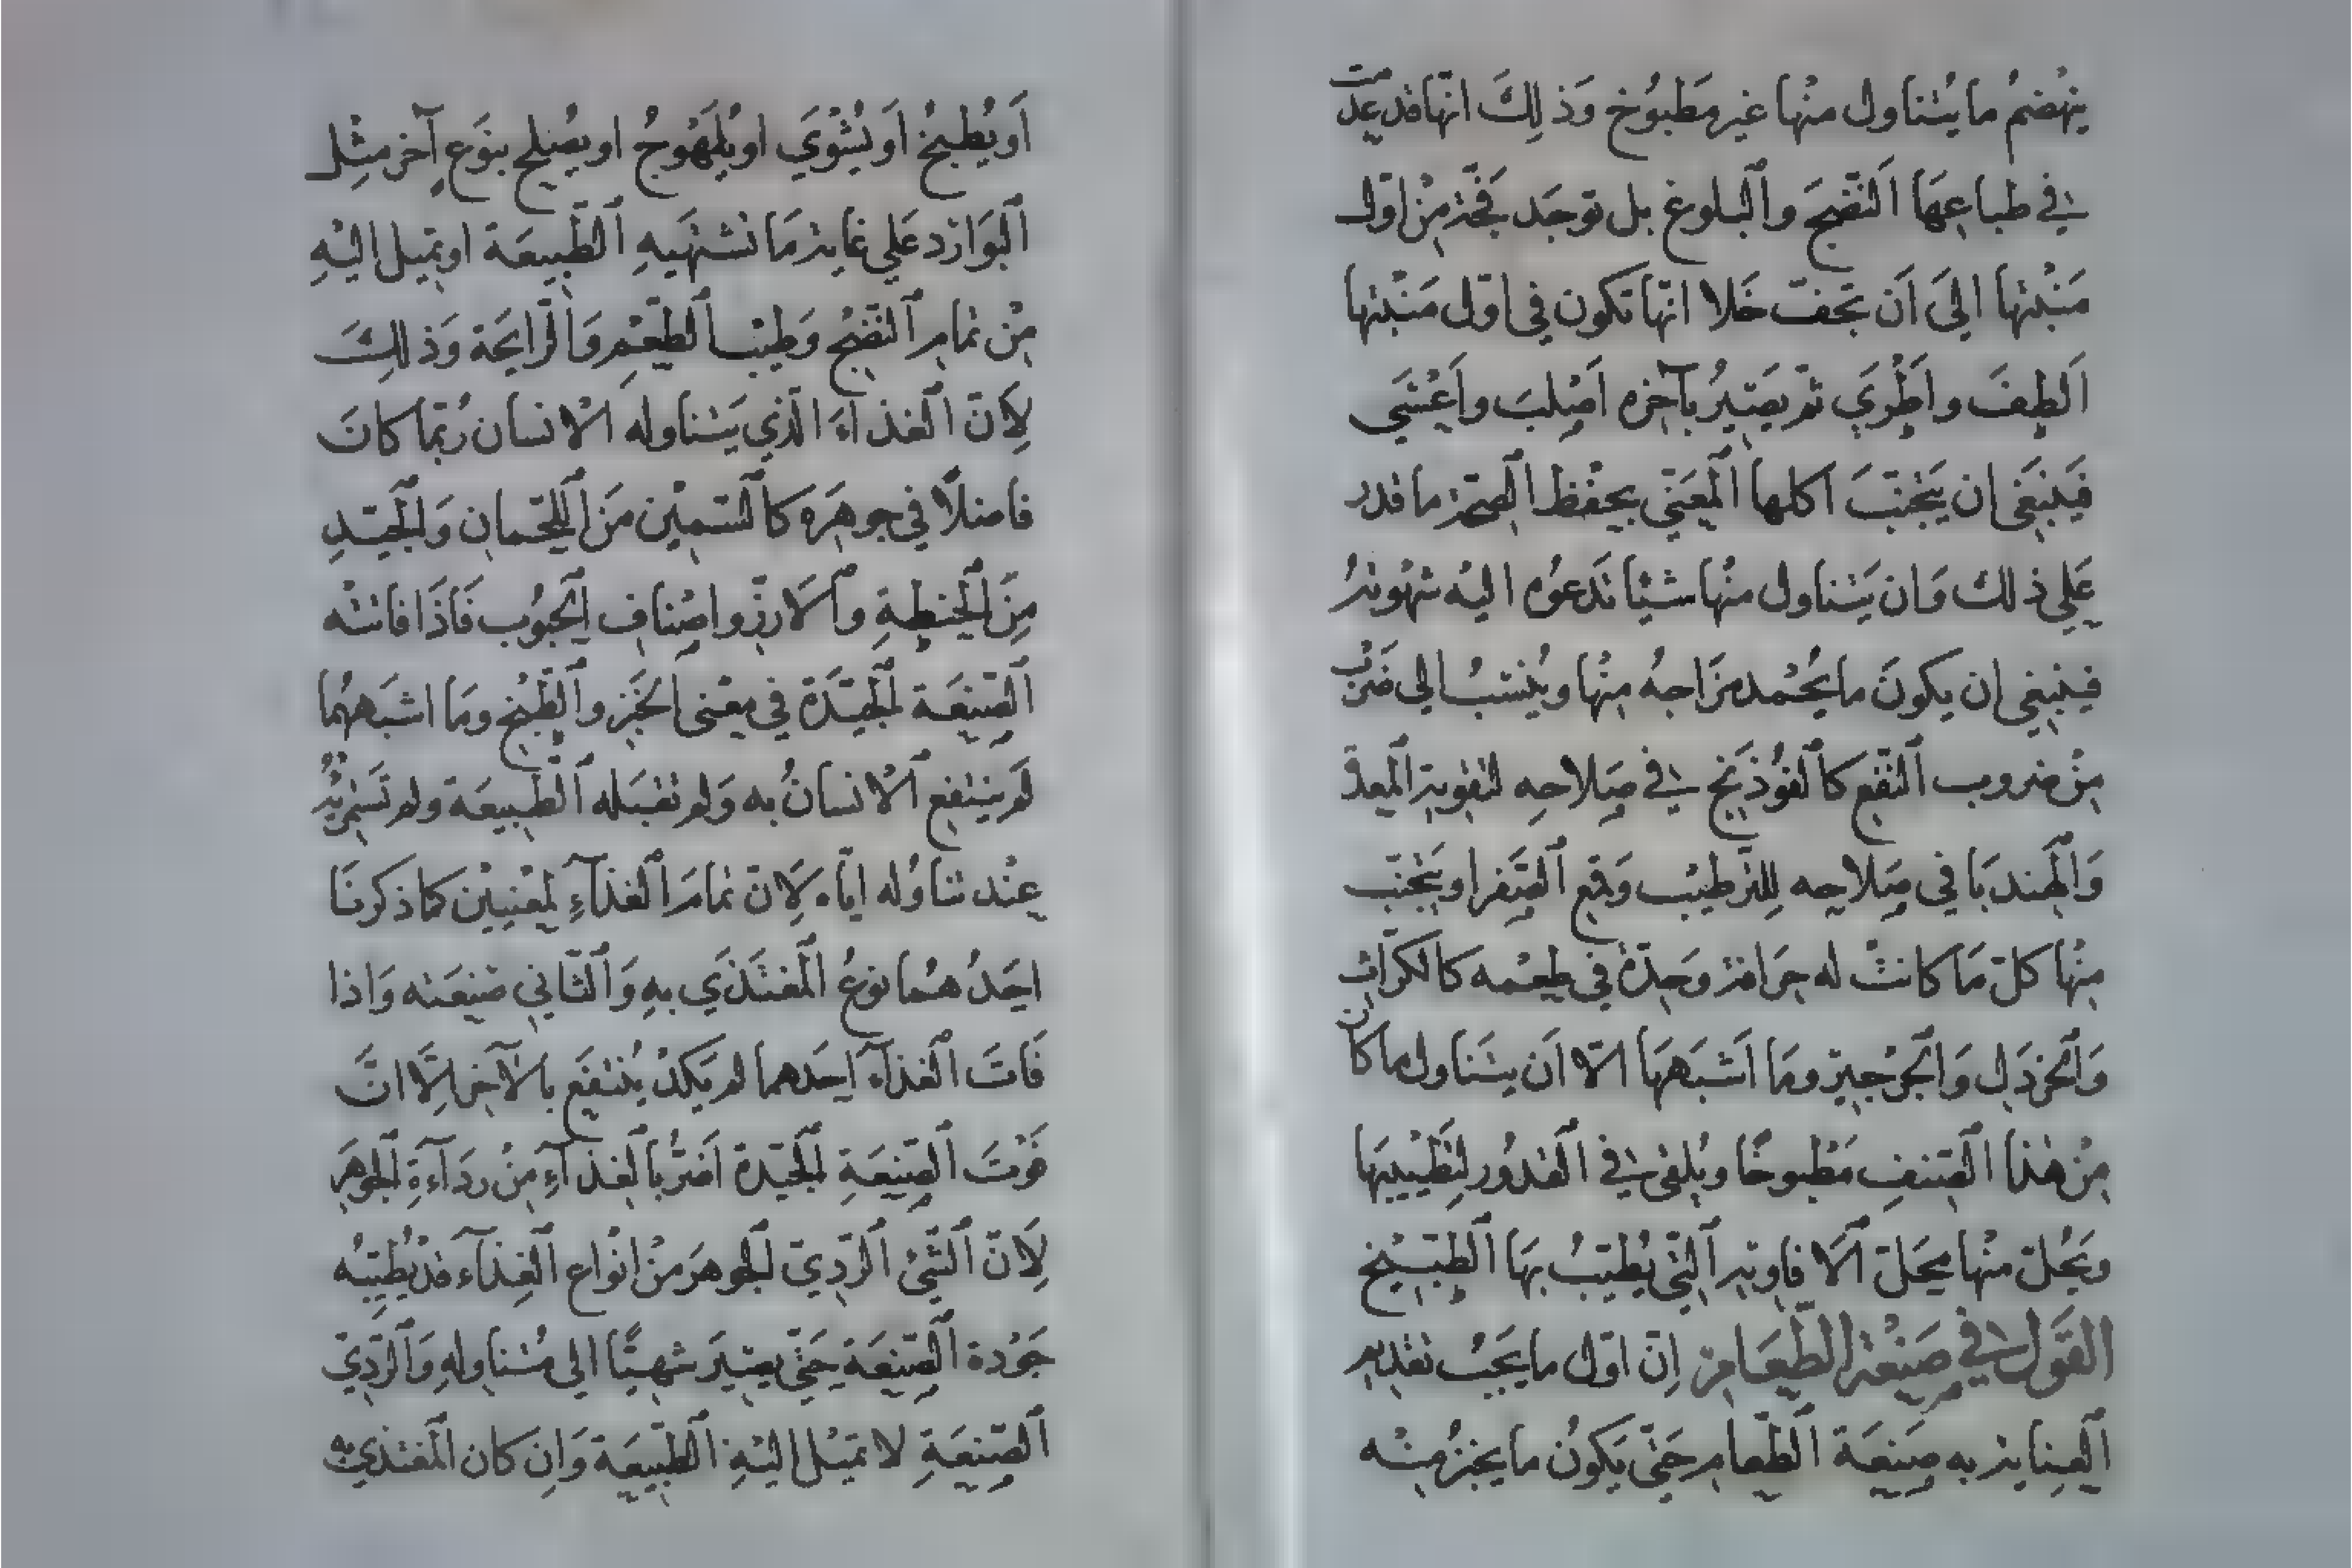 ينهضمُ ما يُتناول منها غير مَطبُوخ وَذلِكَ انّها قد عدمت
في طباعِهَا اَلنّضجَ واَلبلوغ بل توجَد فجّة مِنْ اوّل
مَنْبتها الىَ اَن تجفّ خَلا انّها تكون في اوّل مَنْبتها
اَلطفَ واَطْرَي ثمّ يصَيرُ بآخره اَصْلبَ واَعْسَى
فَينبَغى ان يَجْتنبَ اكلها اَلمعَنّى بحفْظ الصّحّة ما قدر
عَلي ذلك وَان يَتناول منْها شيئا تَدعوُه اليْه شهْوتهُ
فينبغي ان يكونَ ما يُحْمد مزَاجهُ منْها ويُنسَبُ الى ضَرْب
مِنْ ضروب اَلنّفع كاَلفوُذَنج في صَلاحِه لتقوية اَلمعدة
وَاَلهندبَا في صَلاحِه لِلترطيْب وَقمع اَلصّفرا ويَجْتنب
منْها كلّ مَا كانتْ له حرَافة وَحدّةٌ في طعْمه كالكرّاث
وَاَلخرْدَل وَاَلجرْجيرْ ومَا اَشبَهَهَا الاّ اَن يتَناول ما كان
مِنْ هٰذا اَلصّنفِ مَطْبوخًا ويُلقىٰ في اَلقدُور لتَطْييبهَا
ويَحُلّ منْها محَلّ اَلافاويه اَلتّي يُطيّبُ بهَا اَلطبّيْخ
القَول في صَنْعة الطّعَام اِنّ اوّل ما يَجبُ تقديم
اَلعنِاية به صَنعَة اَلطّعام حَتّي يَكونُ ما يخبزُ منْه
اَو يُطبخُ اَو يُشْوَي او يُلَهْوجُ او يصُلح بنوَع آخر مثِل
اَلبَوَارد عَلي غاية مَا تشتهَيهِ اَلطّبيعَة او تميل اليْهِ
مِنْ تمام اَلنّضْج وَطيْب اَلطّعْم وَاَلرّايحَة وَذلِكَ
لِاَنّ اَلغذاءَ الّذي يَتناوله اْلانسان رُبّما كانَ
فاضلًا في جوهَرَه كاَلسّميْن مَن اَللّحْمان وَاَلجيّدِ
مِنَ اَلحنطةِ واَلارزّ واصْناف اَلحبوُب فَاذَا فاتتْه
اَلصّنعَة اَلجيّدَة في معْنى اَلخبَز واَلطّبْخ ومَا اشبَههُما
لَم ينتفع اَلانسانُ به وَلم تقبَله اَلطّبيعَة ولم تَسْتمْرئه
عِنْد تناوُله ايّاه لِاَنّ تمامَ اَلغذآءِ لمعْنييْن كما ذكرنَا
احَدُ هُما نوعُ اَلمغتَذَي بهِ وَاَلثّاني صَنعَته وَاذا
فَاتَ اَلغذآءَ احَدهما لم يَكدْ يُنتفَع باْلآخر الِّا انَّ
فَوْتَ اَلصّنِعَةِ اَلجيّدة اَضَرُّ باَلغذآءِ مِنْ ردَآءةِ اَلجوهَر
لِاَنّ اَلشّيْ اَلرّدِيّ اَلجوهَر مَنْ انْواع اَلغِذآء قدْ يُطيّبُه
جَوْدة اَلصّنعَة حَتّي يصَيرَ شهيًّا الى مُتناولهِ وَاَلرّديّ
اَلصّنعَةِ لا تميْل اليْهِ اَلطّبيعَة وَاِن كان اَلمغتذي به